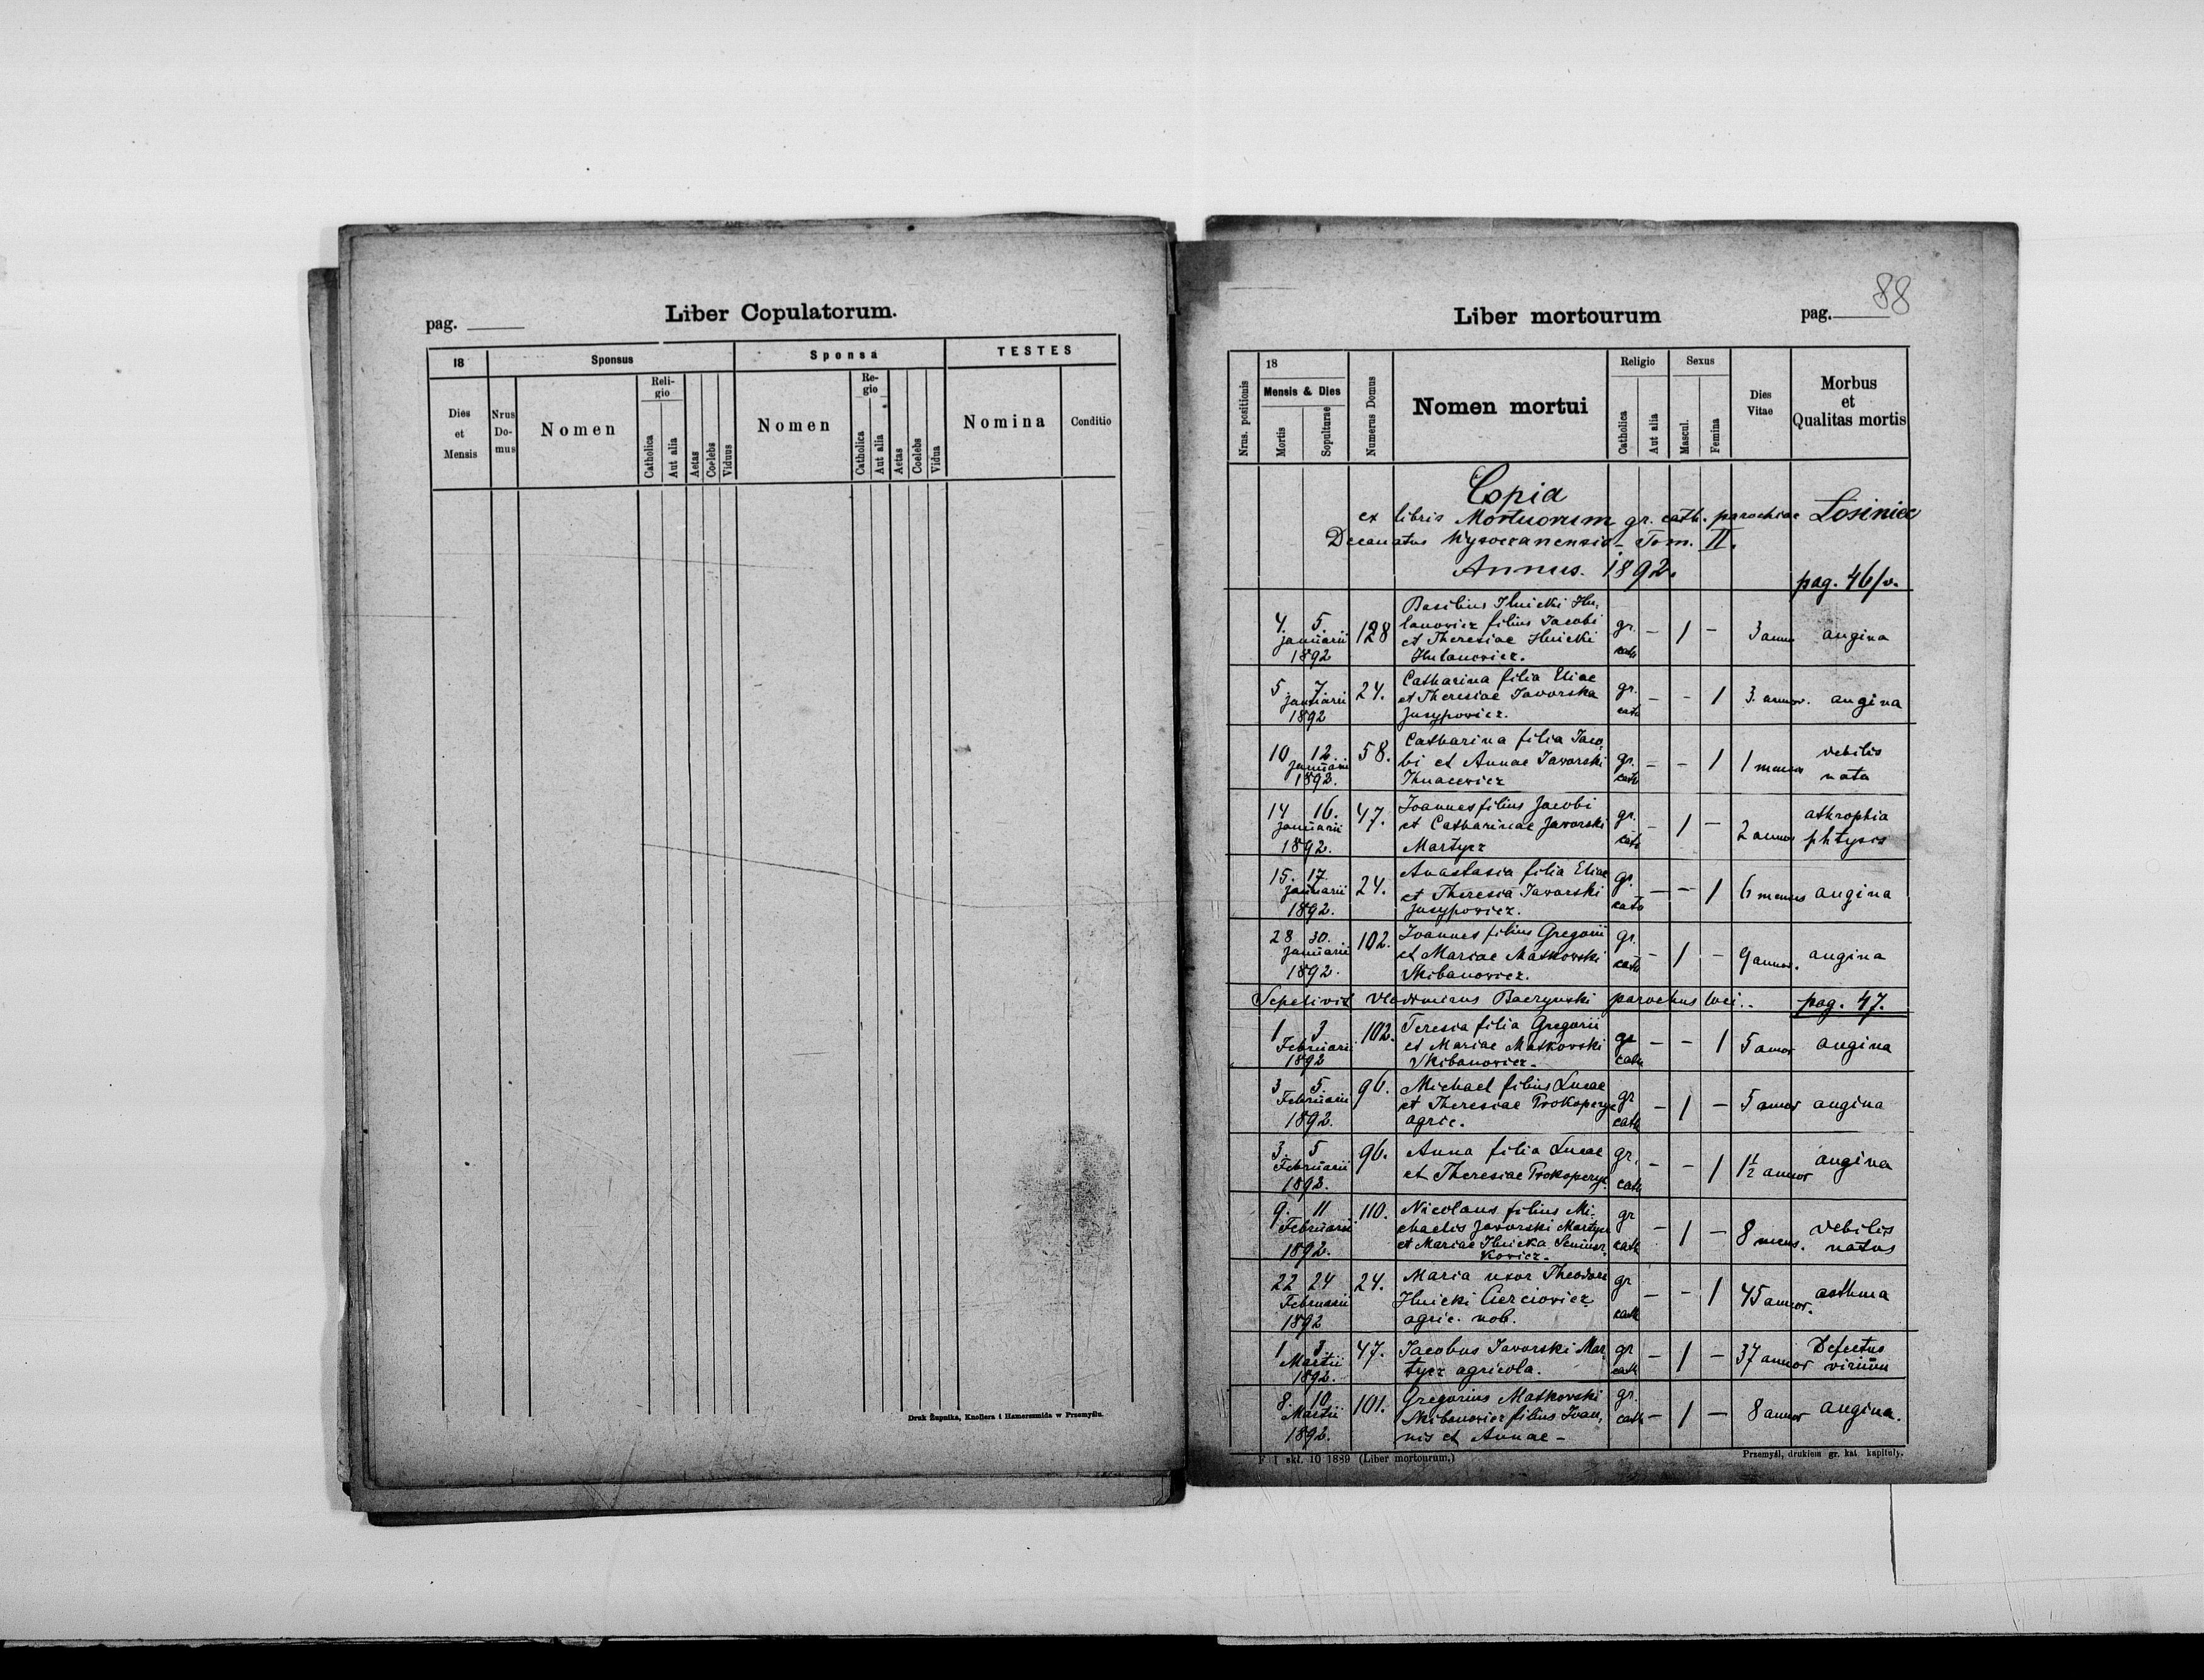 pag.
Liber Copulatorum.
18
Sponsus
Sponsa
TESTES
Dies et Mensis
Nrus Do- mus
Nomen
Reli- gio
Catholica
Aut alia
Aetas
Coelebs
Viduus
Nomen
Re- gio
Catholica
Aut alia
Aetas
Coelebs
Vidua
Nomina
Conditio
Druk Żupnika, Knollera i Hamerszmida w Przemyślu.
88
Liber mortourum
pag.
Nrus. positionis
18
Mensis & Dies
Mortis
Sepulturae
Numerus Domus
Nomen mortui
Religio
Catholica
Aut alia
Sexus
Mascul.
Femina
Dies Vitae
Morbus et Qualitas mortis
Copia
ex libris Mortuorum gr. cath. parochiae Losiniec
Decanatus Wysoczanensis - Tom. II.
Annus. 1892.
pag. 46/v.
Basilius Ilnicki Hu-
4. 5. 128 lanowicz filius Jacobi gr. - 1 - 3 annor angina
januarii et Theresiae Ilnicki
1892 Hulanowicz. cath
5 7 24. Catharina filia Eliae gr. - - 1 3. annor. angina
januarii et Theresiae Javorska
1892 Jusypowicz. cath
10 12. 58. Catharina filia Jaco- gr. - - 1 1 mensis debilis
januarii bi et Annae Javorski
1892. Ihnacewicz cath nata
14 16. 47. Joannes filius Jacobi gr. - 1 - 2 annor athrophia
januarii et Catharinae Javorski phtysis
1892. Martycz cath
15. 17. 24. Anastasia filia Eliae gr. - - 1 6 mensis angina
januarii et Theresia Javorski
1892. Jusypowicz. cath
28 30. 102. Joannes filius Gregorii gr. - 1 - 9 annor. angina
januarii et Mariae Matkovski
1892. Skibanowicz. cath
Sepelivit Vladimirus Baczynski parochus loci.. pag. 47.
1 3 102. Teresia filia Gregorii gr - - 1 5 annor angina
Februarii et Mariae Matkovski
1892 Skibanowicz. cath
3 5. 96. Michael filius Lucae gr - 1 - 5 annor angina
Februarii et Theresiae Prokoperyc
1892. agric. cath
3. 5 96. Anna filia Lucae gr. - - 1 1½ annor angina
Februarii et Theresiae Prokoperyc
1892. cath
9. 11 110. Nicolaus filius Mi- gr - 1 - 8 mens. debilis
Februarii chaelis Javorski Martycz natus
1892. et Mariae Ilnicka cath
kowicz.
22 24 24. Maria uxor Theodori gr - - 1 45 annor. asthma
Februarii Ilnicki
1892 agric. nob. cath
1 3. 47. Jacobus Javorski Mar gr - 1 - 37 annor Defectus
Martii tycz agricola. virium
1892. cath
8. 10 101. Gregorius Matkovski gr. - 1 - 8 annor angina.
Martii Skibanowicz filius Ioan- cath
1892. nis et Annae -
F 1 skł. 10 1889 (Liber mortourum.)
Przemyśl, drukiem gr. kat. kapituły.